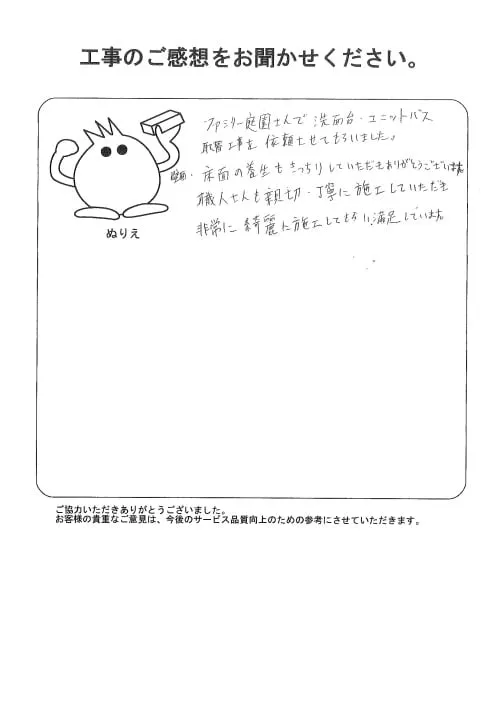 工事のご感想をお聞かせください。
ファミリー庭園さんで 洗面台・ユニットバス
取替工事を 依頼させてもらいました。
壁面・床面の養生もきっちりしていただきありがとうございます。
職人さんも親切・丁寧に施工していただき
非常に 綺麗に施工してもらい満足しています。
ぬりえ
ご協力いただきありがとうございました。
お客様の貴重なご意見は、今後のサービス品質向上のための参考にさせていただきます。